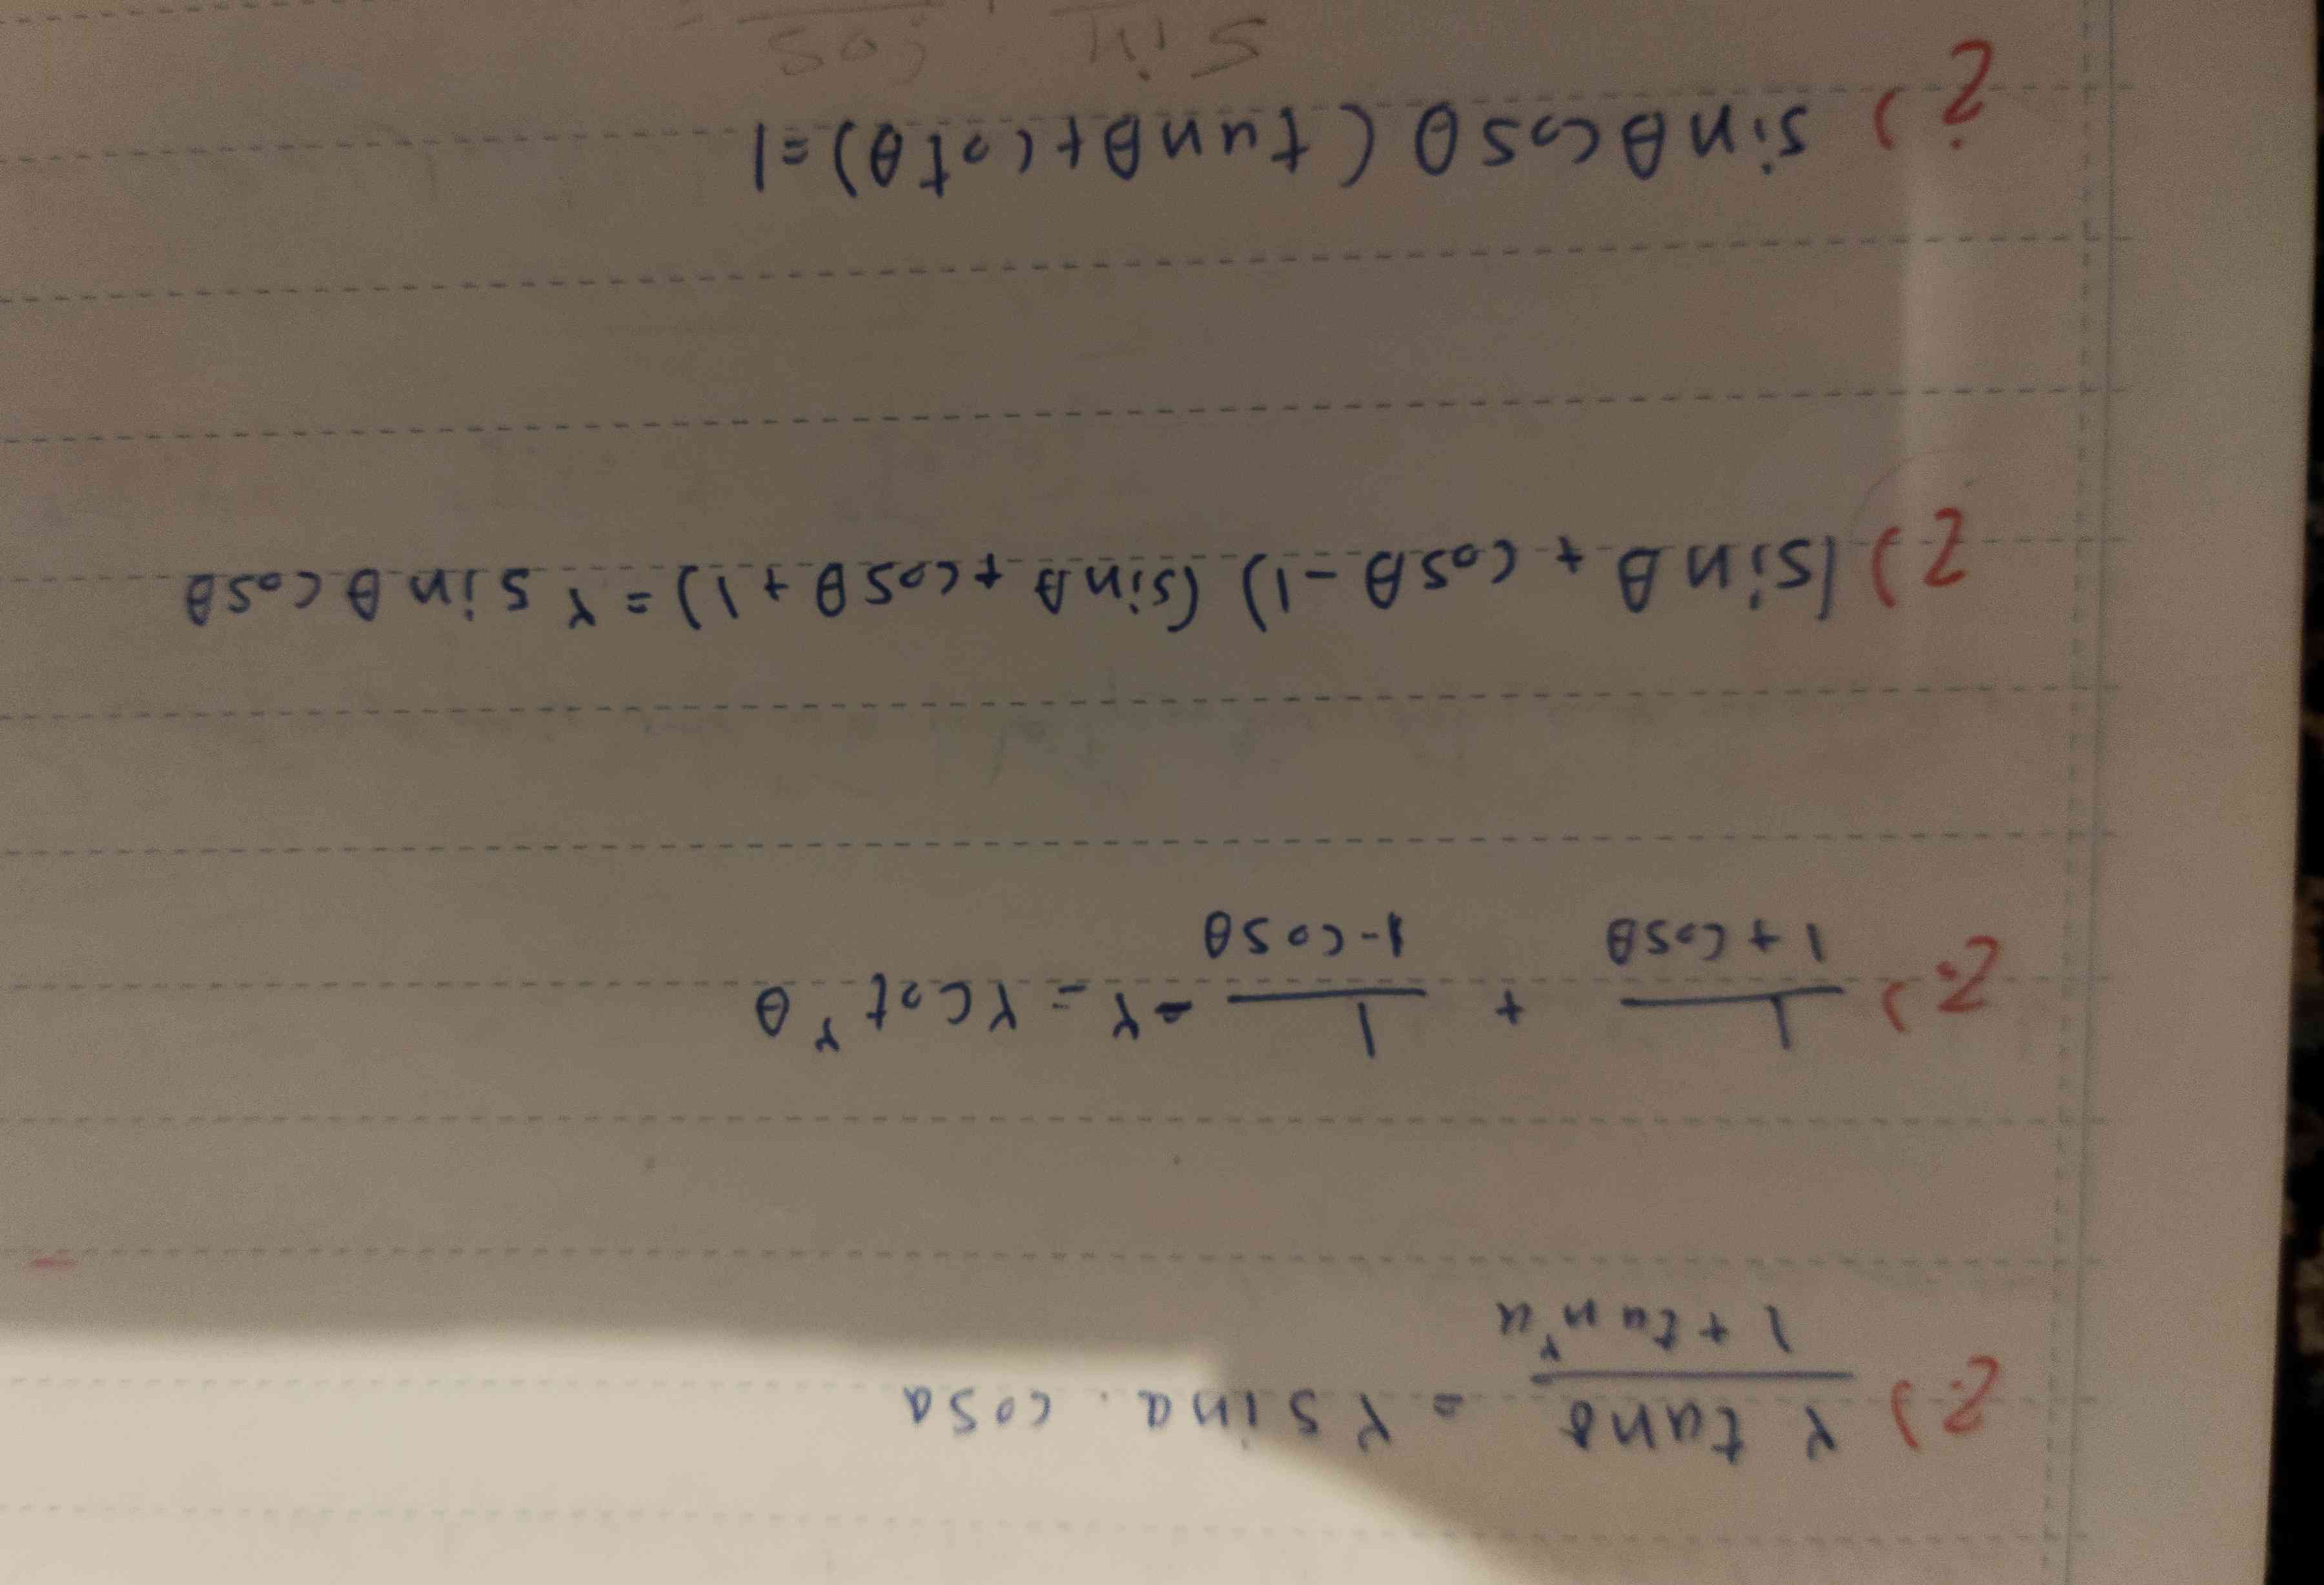 ؟) ۲ tanθ / ۱ + tan^۲ a = ۲ sina . cosa
؟) 1 / 1 + cosθ + 1 / 1 - cosθ - ۲ = ۲ cot^۲ θ
؟) (sin θ + cos θ - 1) (sin θ + cos θ + 1) = ۲ sin θ cos θ
؟) sin θ cos θ ( tan θ + cot θ) = 1
sin cos